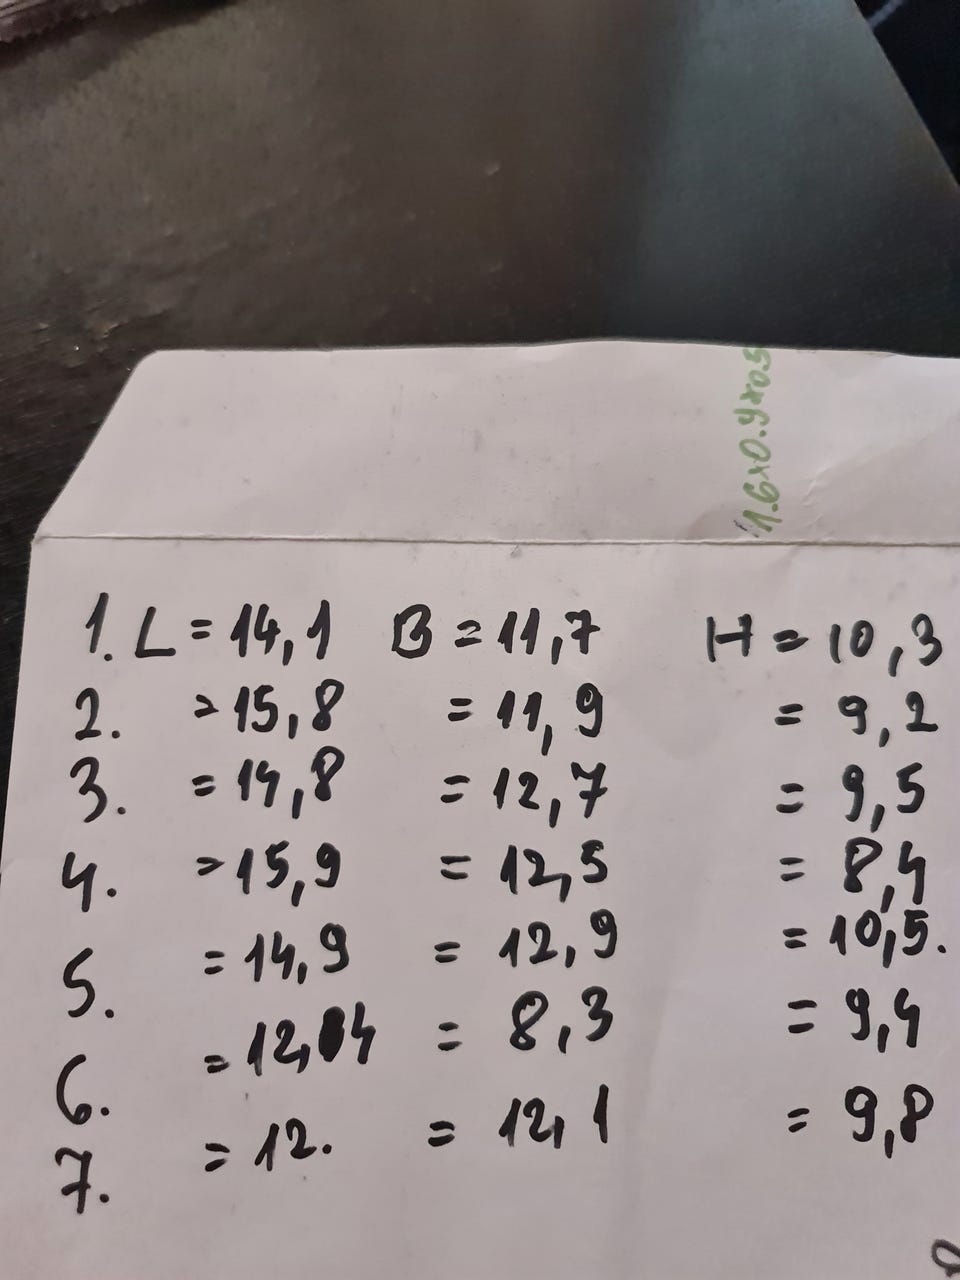 1.6x0.9x05
1. L = 14,1 B = 11,7 H = 10,3
2. = 15,8 = 11,9 = 9,2
3. = 14,8 = 12,7 = 9,5
4. = 15,9 = 12,5 = 8,4
5. = 14,9 = 12,9 = 10,5.
6. = 12,04 = 8,3 = 9,4
7. = 12. = 12,1 = 9,8